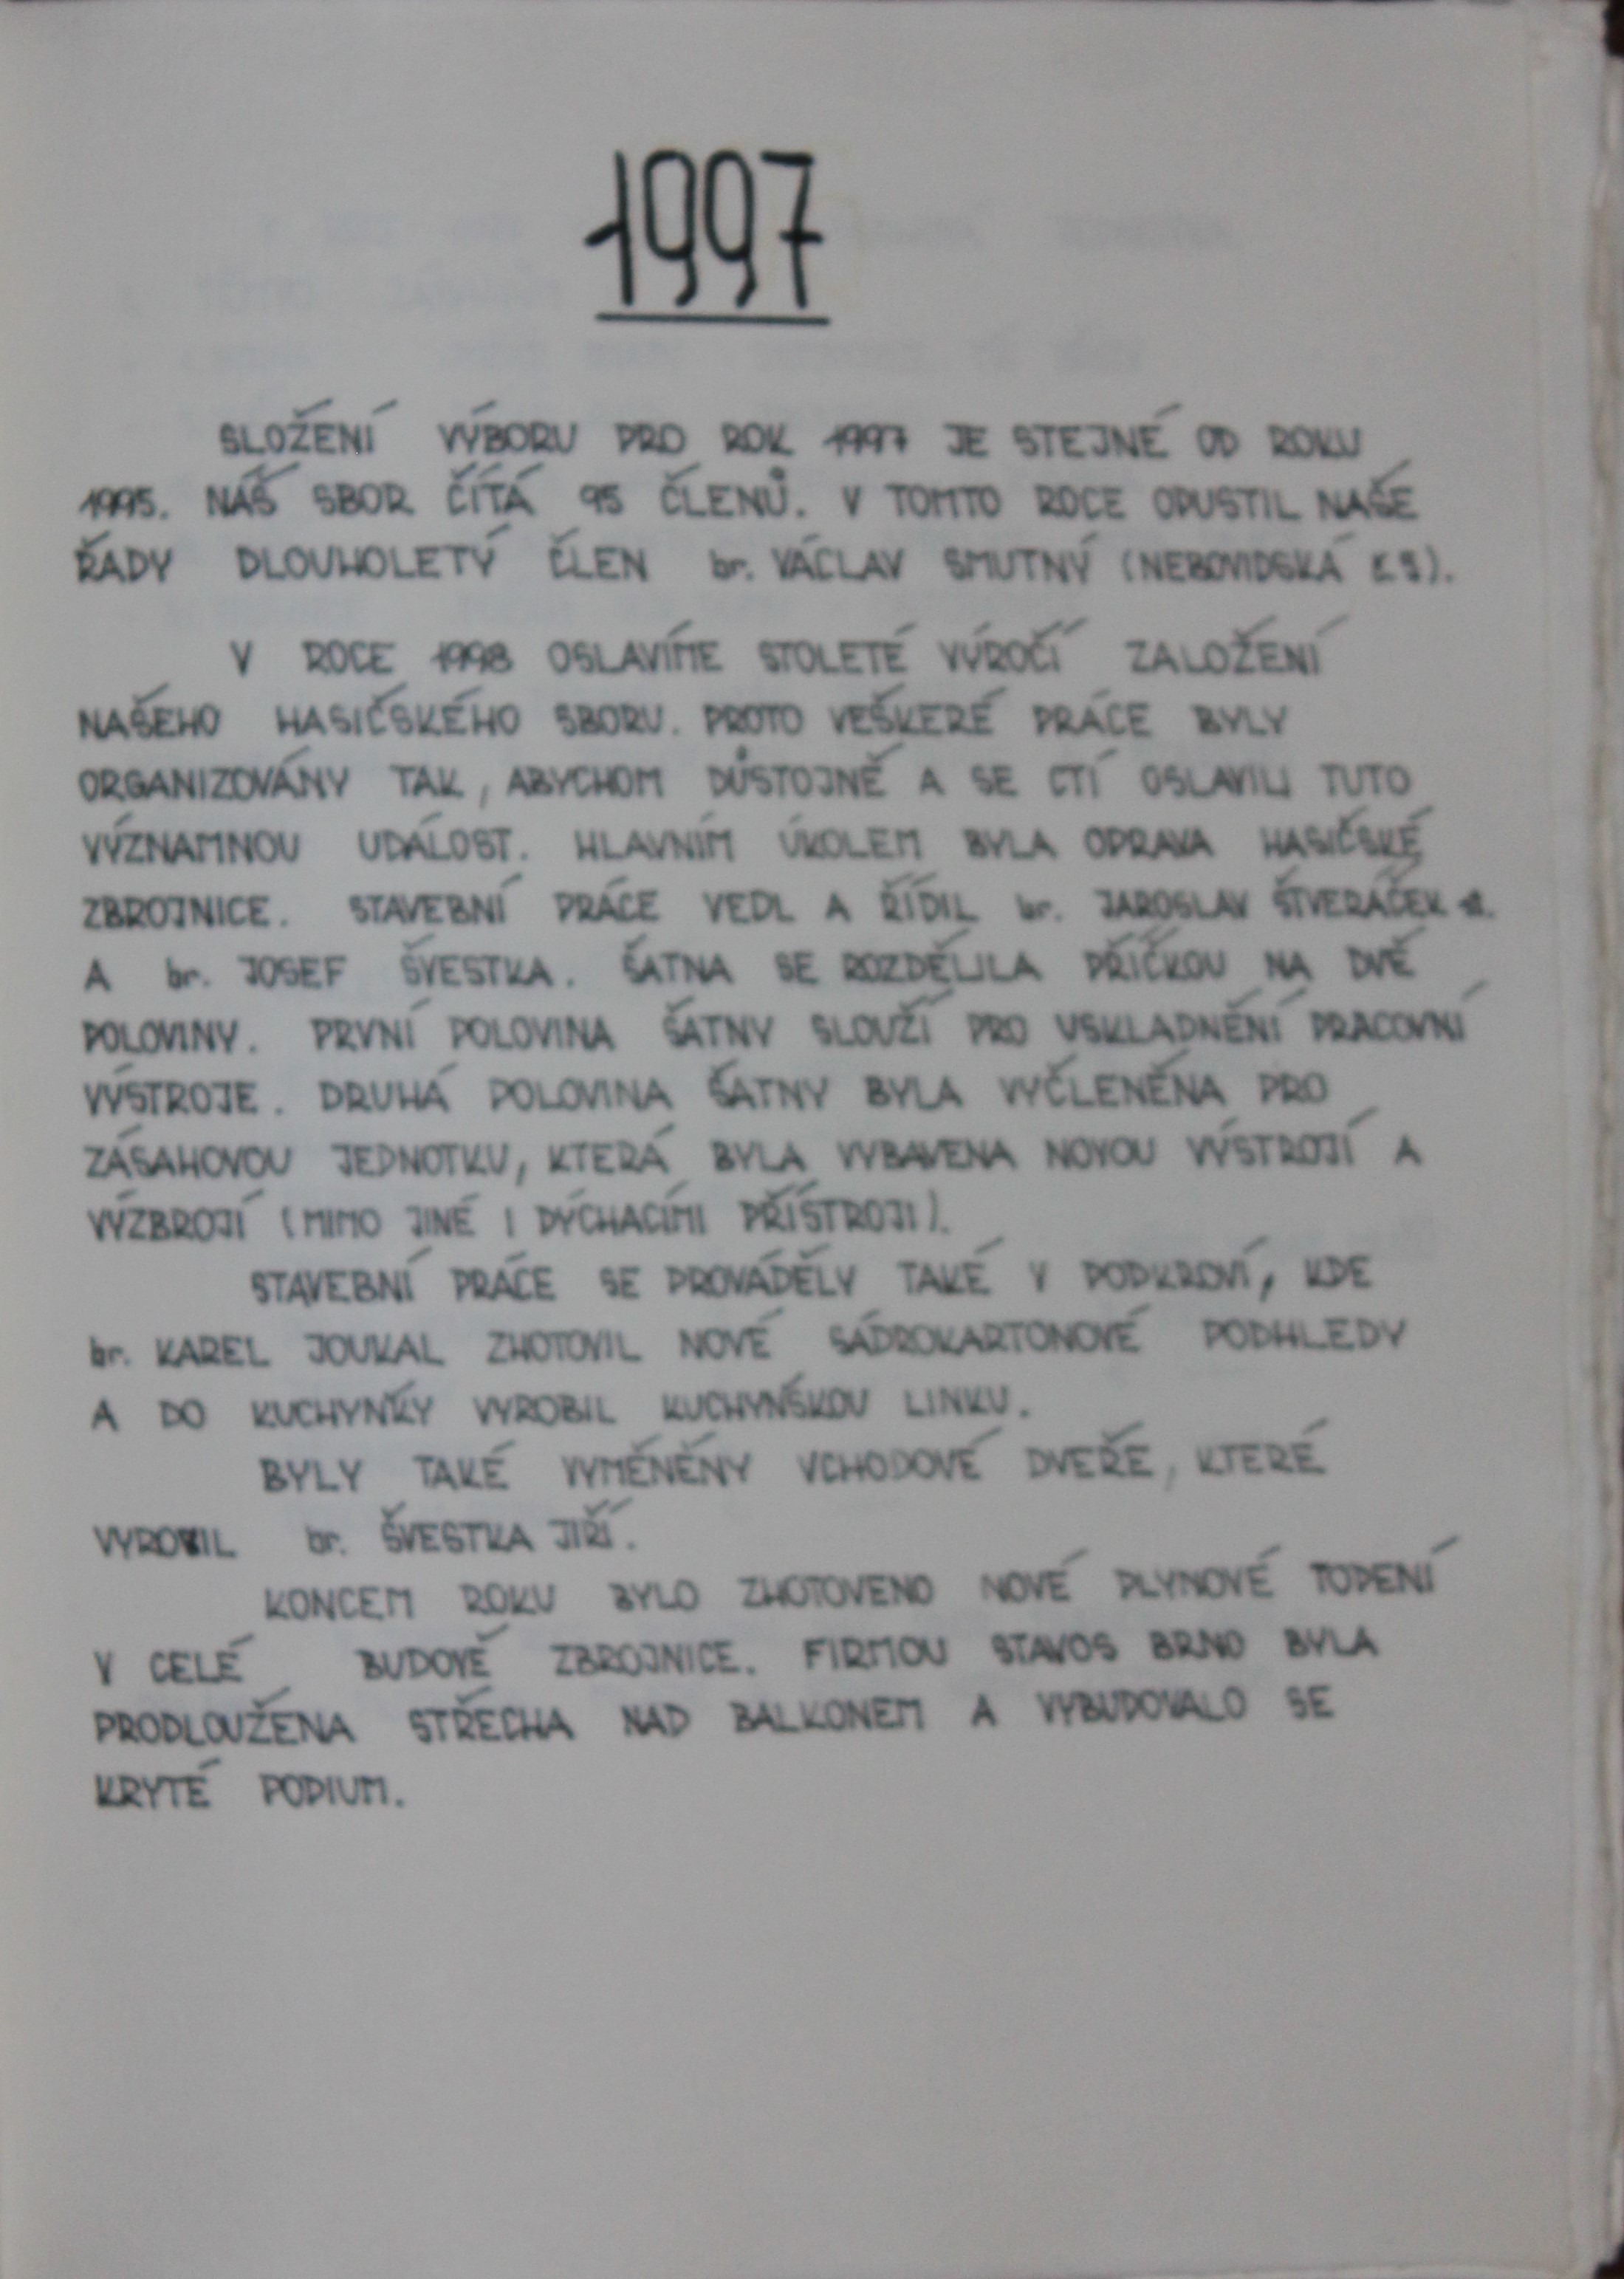 1997
SLOŽENÍ VÝBORU PRO ROK 1997 JE STEJNÉ OD ROKU
1995. NÁŠ SBOR ČÍTÁ 95 ČLENŮ. V TOMTO ROCE OPUSTIL NAŠE
ŘADY DLOUHOLETÝ ČLEN br. VÁCLAV SMUTNÝ (NEBOVIDSKÁ
V ROCE 1998 OSLAVÍME STOLETÉ VÝROČÍ ZALOŽENÍ
NAŠEHO HASIČSKÉHO SBORU. PROTO VEŠKERÉ PRÁCE BYLY
ORGANIZOVÁNY TAK, ABYCHOM DŮSTOJNĚ A SE CTÍ OSLAVILI TUTO
VÝZNAMNOU UDÁLOST. HLAVNÍM ÚKOLEM BYLA OPRAVA HASIČSKÉ
ZBROJNICE. STAVEBNÍ PRÁCE VEDL A ŘÍDIL br. JAROSLAV ŠTVERÁČEK
A br. JOSEF ŠVESTKA. ŠATNA SE ROZDĚLILA PŘÍČKOU NA DVĚ
POLOVINY. PRVNÍ POLOVINA ŠATNY SLOUŽÍ PRO USKLADNĚNÍ PRACOVNÍ
VÝSTROJE. DRUHÁ POLOVINA ŠATNY BYLA VYČLENĚNA PRO
ZÁSAHOVOU JEDNOTKU, KTERÁ BYLA VYBAVENA NOVOU VÝSTROJÍ A
VÝZBROJÍ (MIMO JINÉ I DÝCHACÍMI PŘÍSTROJI).
STAVEBNÍ PRÁCE SE PROVÁDĚLY TAKÉ V PODKROVÍ, KDE
br. KAREL JOUKAL ZHOTOVIL NOVÉ SÁDROKARTONOVÉ PODHLEDY
A DO KUCHYŇKY VYROBIL KUCHYŇSKOU LINKU.
BYLY TAKÉ VYMĚNĚNY VCHODOVÉ DVEŘE, KTERÉ
VYROBIL br. ŠVESTKA JIŘÍ.
KONCEM ROKU BYLO ZHOTOVENO NOVÉ PLYNOVÉ TOPENÍ
V CELÉ BUDOVĚ ZBROJNICE. FIRMOU STAVOS BRNO BYLA
PRODLOUŽENA STŘECHA NAD BALKONEM A VYBUDOVALO SE
KRYTÉ PODIUM.